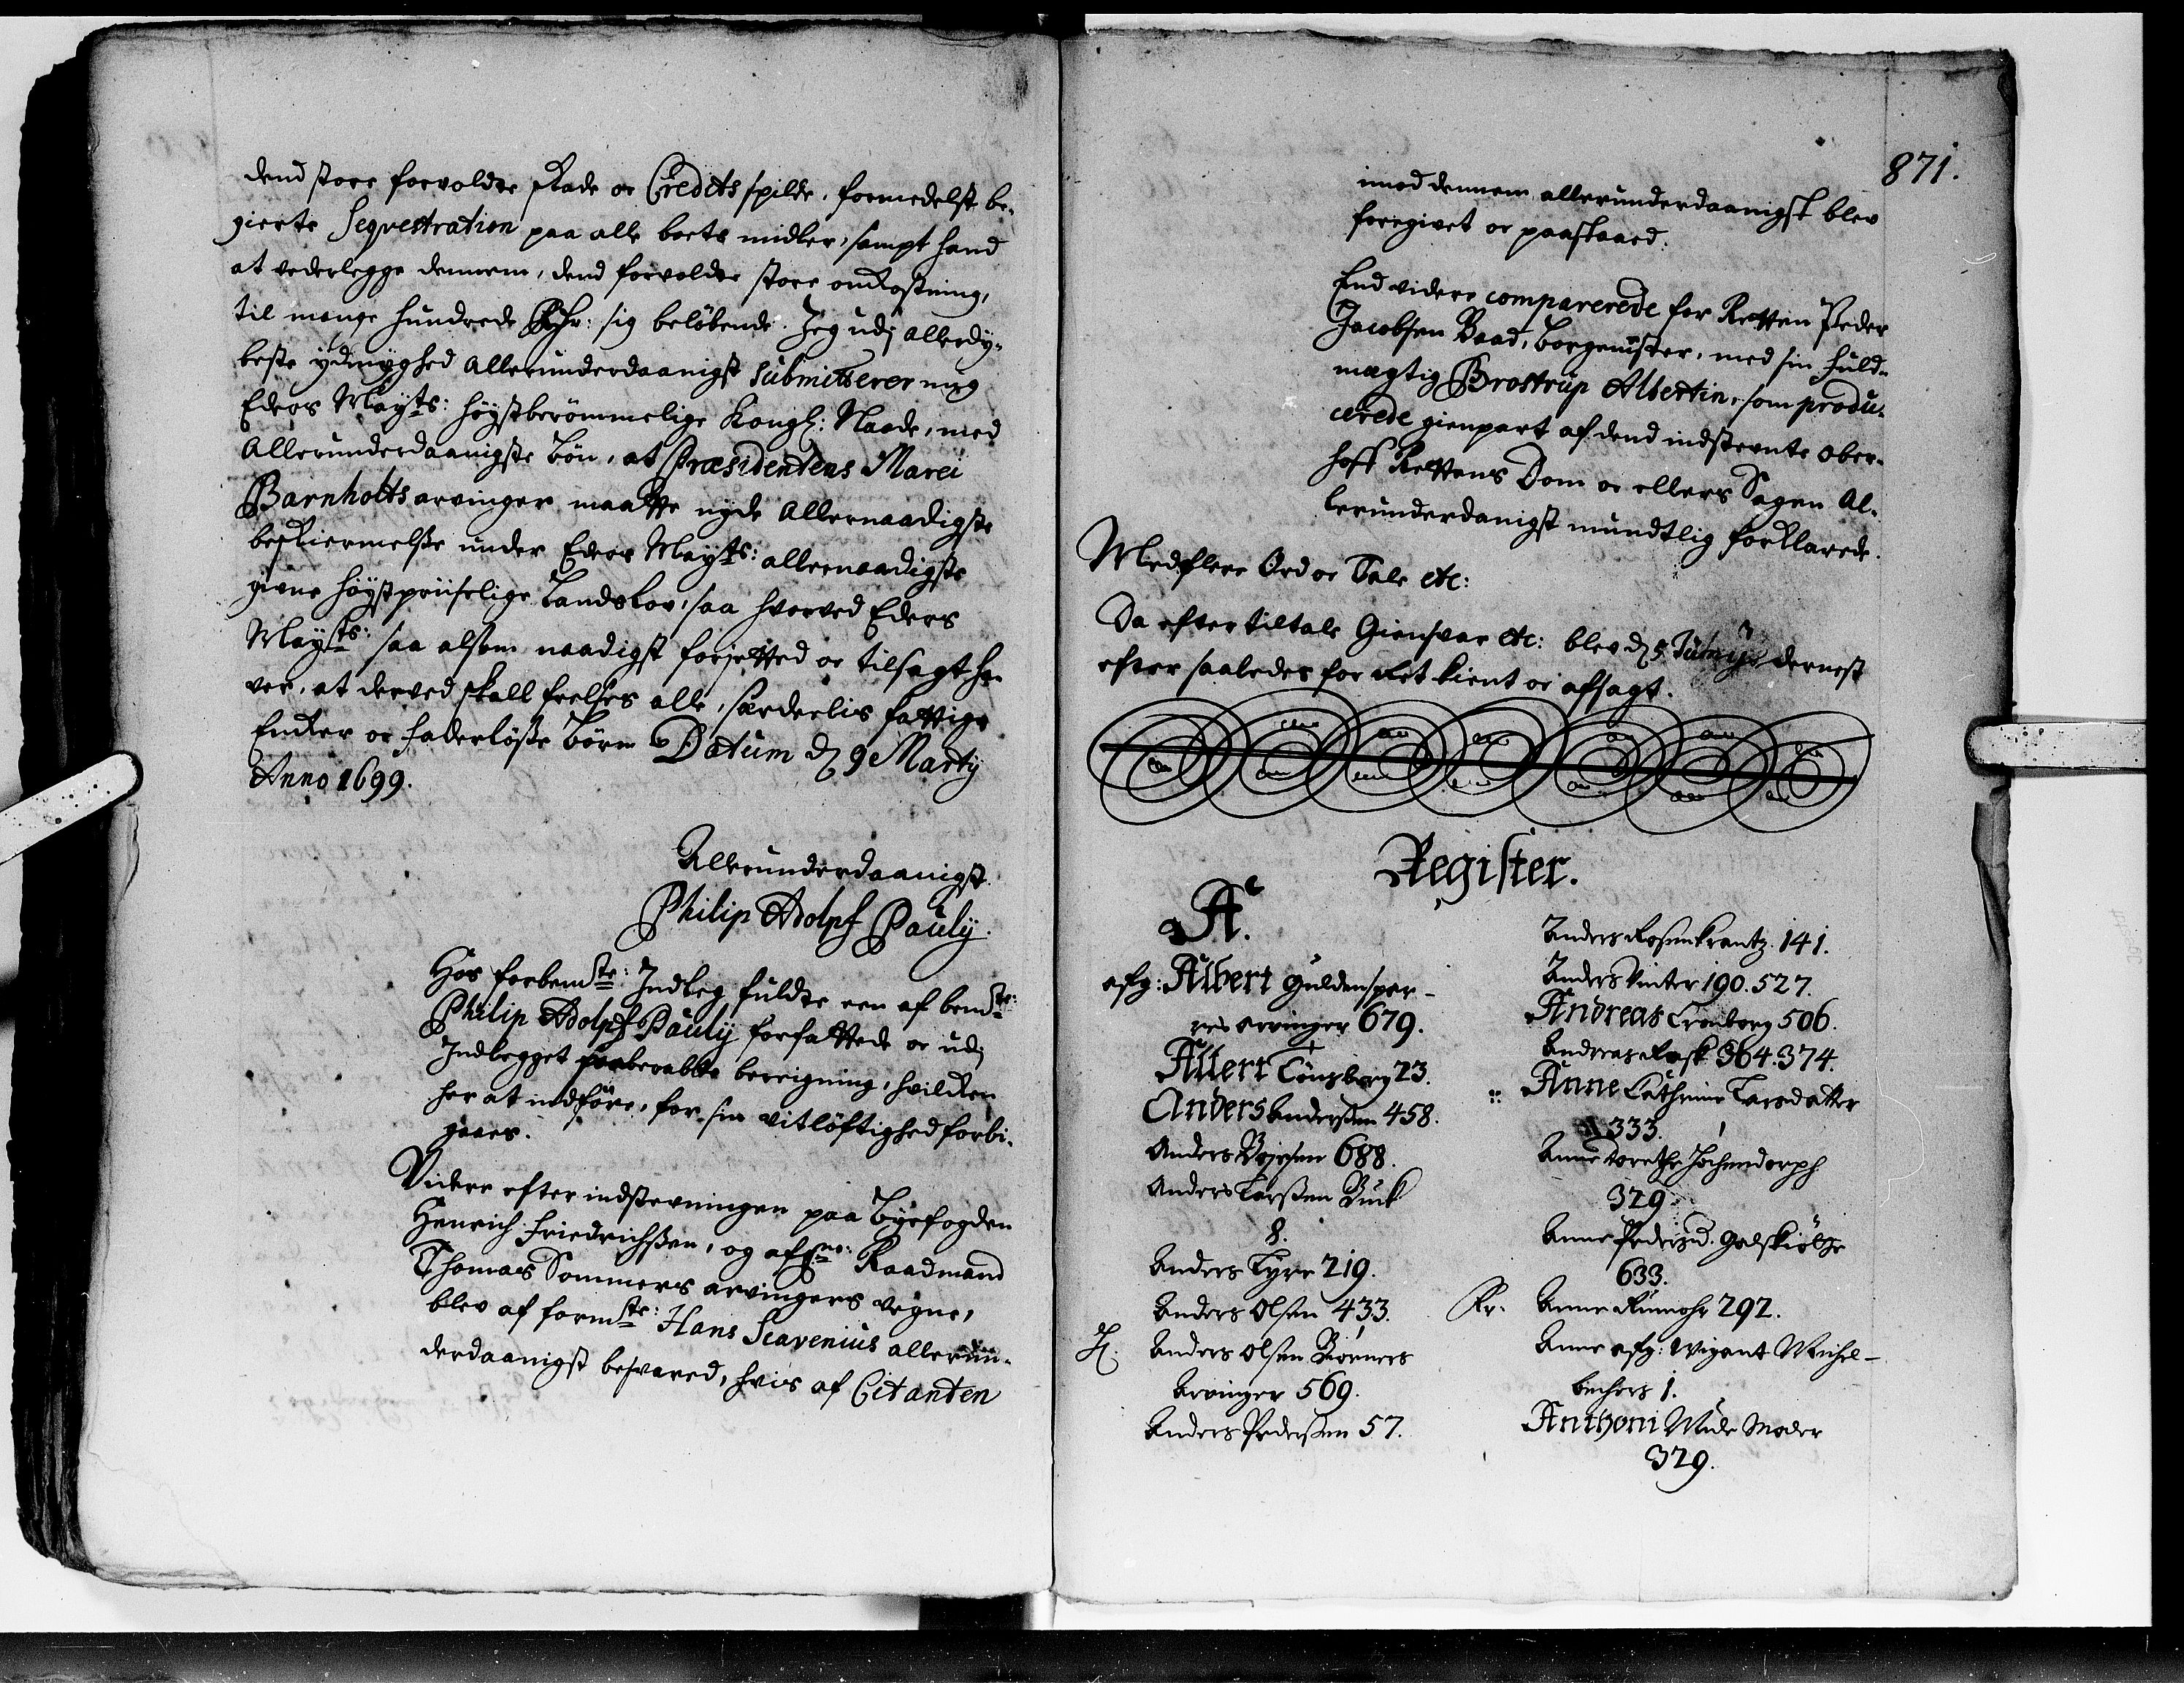 dend store forvoldte skade oc Credits spilde, formedelst be-
gierte Seqvestration paa alle boets midler, sampt hand
at vederlegge dennem, dend forvoldte store omkostning,
til mange hundrede Rdr: sig beløbende. Jeg udj allerdy-
beste ydmyghed allerunderdaanigst submitterer mig
Eders Maÿts: høÿstberømmelige Kongl: Naade, med
allerunderdaanigste bøn, at Præsidentens Marci
Barnholts arvinger maatte nyde allernaadigste
beskiermelsse under Eders Maÿts: allernaadigste
givne høÿstprüselige Landslov, saa hvorved Eders
Maÿts: saa alsom naadigst forjetted oc tilsagt ha-
ver, at derved skall frelses alle, særdeelis fattige
Encker oc faderløsse børn Datum d 9 Martÿ
Anno 1699.
Allerunderdaanigst.
Philip Adolpf Paulÿ.
Hos forbemte: Indleg fuldte een af bemte:
Philip Adolpf Paulÿ forfattede oc udj
Indlegget beregning, hvilcken
her at indføre, for sin vitløftighed forbi-
gaaes.
Videre efter indstevningen paa Byefogden
Henrich Friedrichssen, og afgne: Raadmand
Thomas Sommers arvingers vegne,
blev af formte: Hans Scavenius allerun-
derdaanigst besvared, hvis af Citanten
871.
imod dennem allerunderdaanigst blev
foregivet oc paastaaed.
End videre comparerede for Retten Peder
Jacobsen Baad, borgemster, med sin fuld-
mægtig Brostrup Albertin, som produ-
cerede gienpart af dend indstevnte ober-
hoff Rettens Dom oc ellers Sagen al-
lerunderdanigst mundtlig forklarede.
Med flere Ord oc Tale etc:
Da efter tiltale Giensvar etc: blev d 5 dernest
efter saaledes for Ret kient oc afsagt.
Register.
A.
afg: Albert Guldenspar-
res arvinger 679.
Albert Tønsberg 23.
Anders Anderssen 458.
Anders Bojesen 688.
Anders Larssen Buck
8.
Anders Lyre 219.
Anders Olsen 433.
Anders Olsen Biørners
Arvinger 569.
Anders Pederssen 57.
Anders Rosenkrantz. 141.
Anders Vinter 190. 527.
Andreas Cronborg 506.
Andreas Rask 364. 374.
:: Anne Cathrine Larsdatter
333.
Anne Dorethe Jochumdorph
329.
Anne Pedersd. Galskiøtte
633.
Fr. Anne Rumohr 292.
Anne afg: Wigant Michel-
bechers 1.
Anthoni Mule Moder
329.